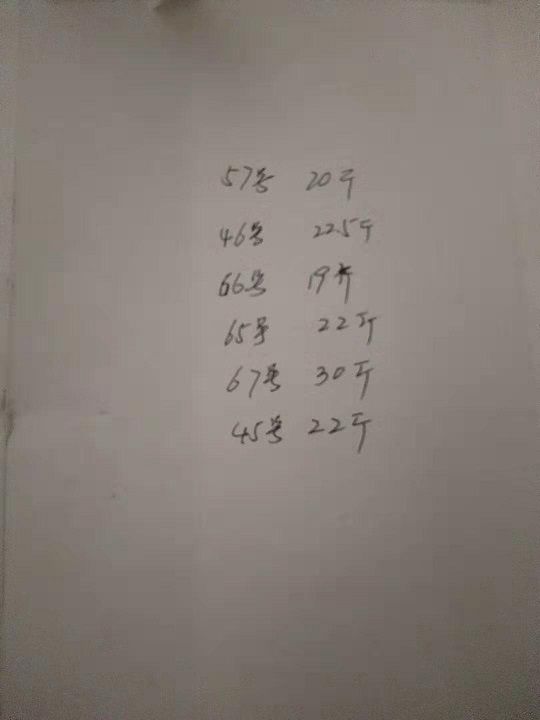 57号 20斤
46号 22.5斤
66号 19斤
65号 22斤
67号 30斤
45号 22斤